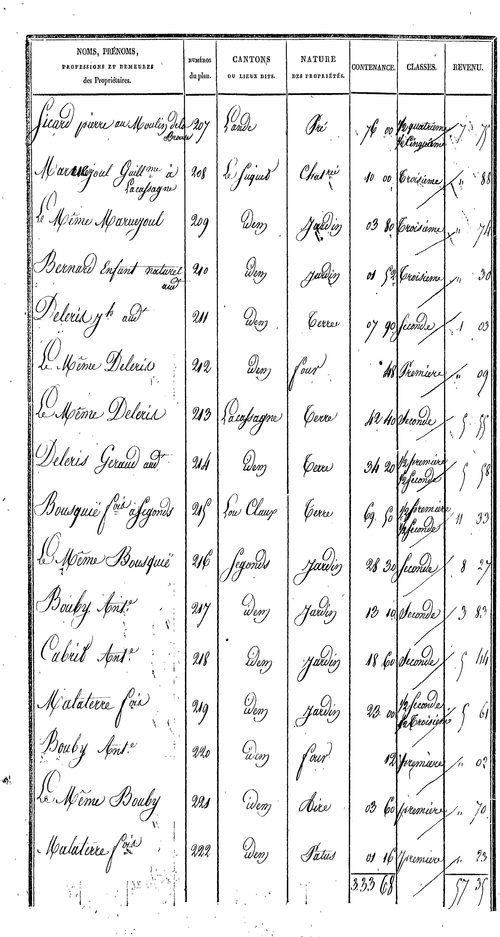 NOMS, PRÉNOMS, PROFESSIONS ET DEMEURES des Propriétaires. NUMÉROS du plan. CANTONS OU LIEUX DITS. NATURE DES PROPRIÉTÉS. CONTENANCE. CLASSES. REVENU.
Sicard pierre au Moulin de la 207 Lande Pré 76 00 1/2 quatrieme 1/2 Cinquieme 7 75
Maruejoul Guillme à Lacassagne 208 Le Siguet 10 00 Troisième " 88
Le Même Maruejoul 209 idem Jardin 03 80 Troisième " 74
Bernard Enfant naturel audt 210 idem Jardin 01 52 Troisieme " 30
Deleris jh audt 211 idem Terre 07 90 Seconde 1 03
Le Même Deleris 212 idem four 48 Premiere " 09
Le Même Deleris 213 Lacassagne Terre 42 40 Seconde 5 55
Deleris Geraud audt 214 idem Terre 34 20 1/2 premiere 1/2 Seconde 5 58
Bousquié fois à Segonds 215 Lou Claux Terre 69 50 1/2 premiere 1/2 Seconde 11 33
Le Même Bousquié 216 Segonds Jardin 28 30 Seconde 8 27
Bouby Ante 217 idem Jardin 13 10 Seconde 3 83
Cabrit Ante 218 idem Jardin 18 60 Seconde 5 44
Malaterre fois 219 idem Jardin 23 00 1/2 Seconde 1/2 Troisieme 5 61
Bouby Ante 220 idem four 12 premiere " 02
Le Même Bouby 221 idem Aire 03 60 premiere " 70
Malaterre fois 222 idem Patus 01 16 premiere " 23
333 68 57 35